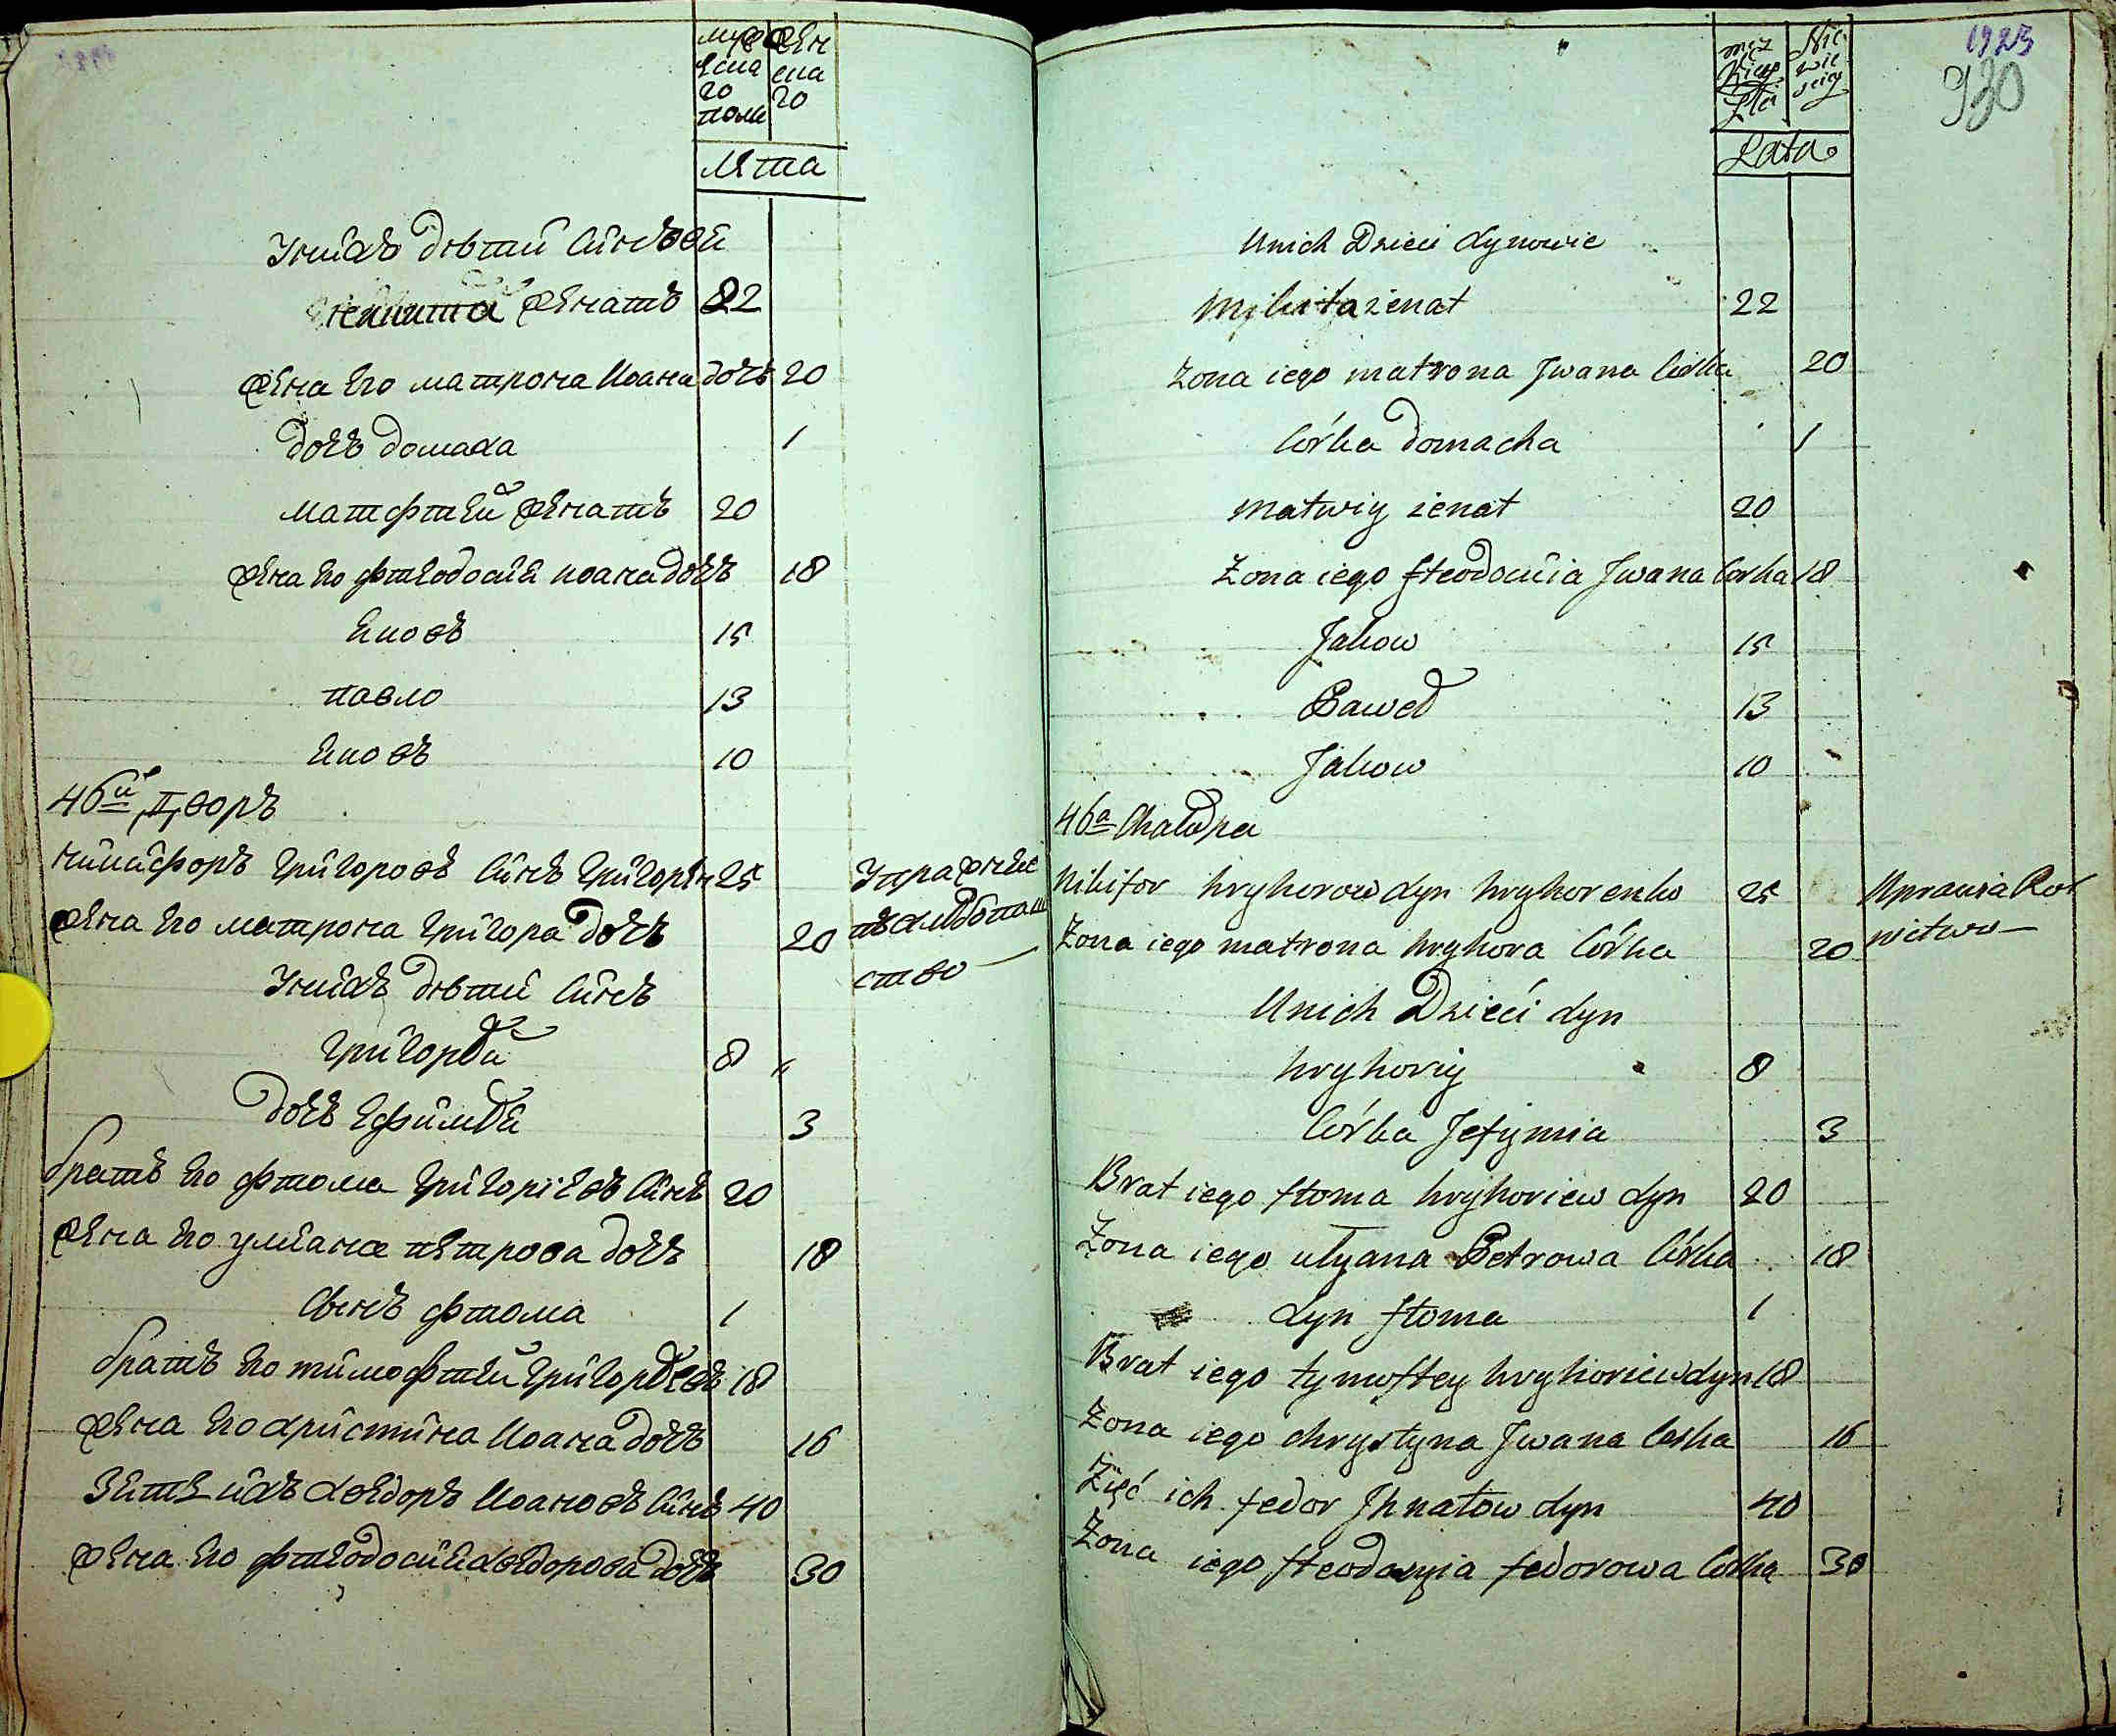 муже
ска
го
полu
жен
ска
го
Лѣта
У нихъ дѣти синовѣ
Никита женатъ 22
жена его матрона Иоана дочь 20
дочь домаха 1
Матфтей женатъ 20
жена его фтеодосия иоана дочь 18
Яковъ 15
павло 13
Яковъ 10
46й Дворъ
никифоръ григоровъ синъ григорен 25
жена его матрона григора дочь 20
У нихъ дѣти синъ
григорiй 8
дочь Ефимiя 3
братъ его фтома григорiевъ синъ 20
жена его улiана петрова дочь 18
Сынъ фтома 1
братъ его тимофтей григорiевъ 18
жена его христина Иоана дочь 16
Зять ихъ хведоръ Иоановъ синъ 40
жена его фтеодосия хведорова дочь 30
męz
kiey
Płci
Nie
wie
sciey
Lata
1923
930
U nich Dzieci Synowie
Mikita żenat 22
Żona iego matrona Jwana Córka 20
Córka Domacha 1
Matwiy żenat 20
Żona iego fteodosiia Jwana Corka 18
Jakow 15
Paweł 13
Jakow 10
46a Chałupa
Nikifor hryhorow Syn hryhorenko 25 Uprawia Rol
nictwo
Żona iego matrona hryhora Córka 20
U nich Dzieći Syn
hryhoriy 8
Córka Jefymia 3
Brat iego ftoma hryhoriew Syn 20
Żona iego ulyana Petrowa Córka 18
Syn ftoma 1
Brat iego tymoftey hryhoriew Syn 18
Żona iego chrystyna Jwana Corka 16
Zięć ich fedor Jhnatow Syn 40
Żona iego fteodosyia fedorowa Córka 30